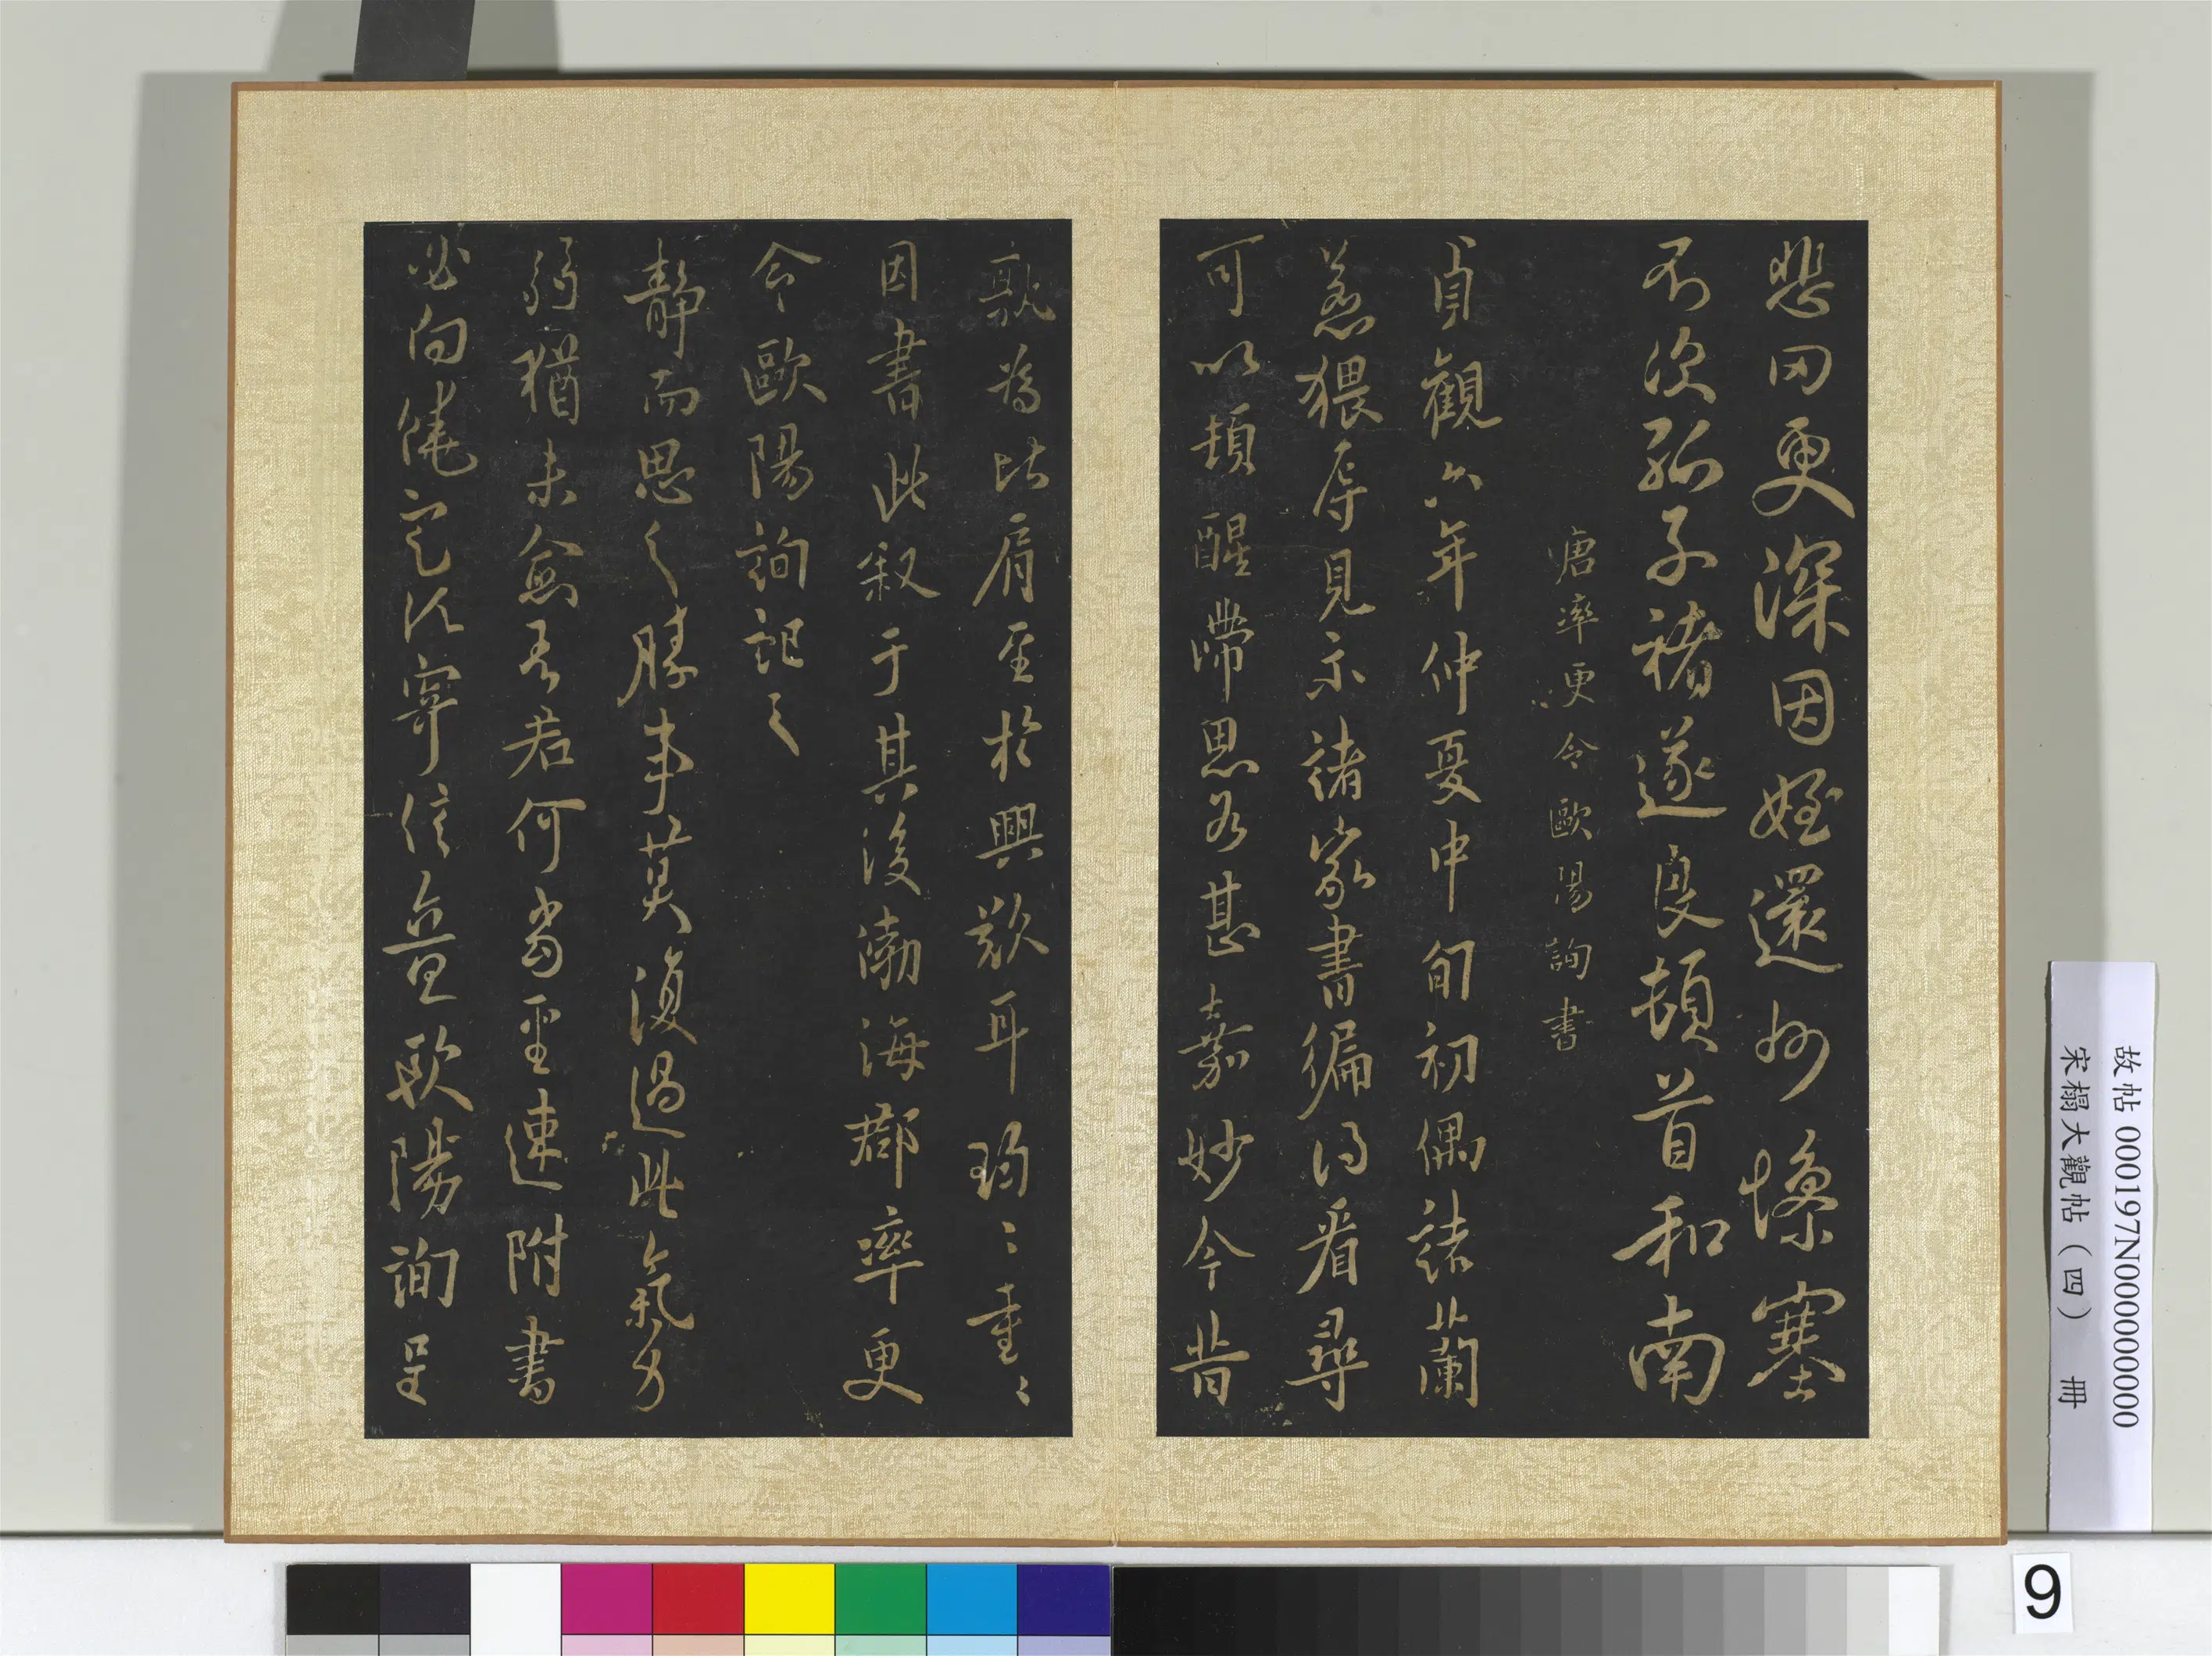 悲罔更深因姪還州慘塞
不次孤子褚遂良頓首和南
唐率更令歐陽詢書
貞觀六年仲夏中旬初偶諸蘭
若猥辱見示諸家書徧得看尋
可以頓醒滯思為甚嘉妙今昔
孰為比肩至於興歎耳珍〻重〻
因書此叙于其後渤海郡率更
令歐陽詢記之
靜而思之勝事莫復過此氣力
弱猶未愈吾君何當至速附書
必向饒定及寄信並歐陽詢呈
故帖 000197N000000000
宋榻大觀帖（四） 冊
9